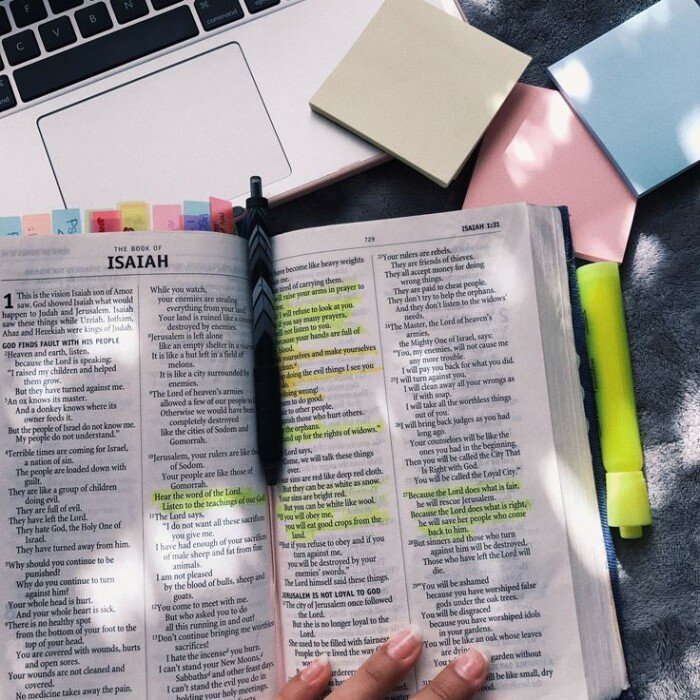 THE BOOK OF
ISAIAH
1 This is the vision Isaiah son of Amoz
saw. God showed Isaiah what would
happen to Judah and Jerusalem. Isaiah
saw these things while Uzziah, Jotham,
Ahaz and Hezekiah were kings of Judah.
GOD FINDS FAULT WITH HIS PEOPLE
2Heaven and earth, listen,
because the Lord is speaking:
"I raised my children and helped
them grow.
But they have turned against me.
3An ox knows its master.
And a donkey knows where its
owner feeds it.
But the people of Israel do not know me.
My people do not understand."
4Terrible times are coming for Israel,
a nation of sin.
The people are loaded down with
guilt.
They are like a group of children
doing evil.
They are full of evil.
They have left the Lord.
They hate God, the Holy One of
Israel.
They have turned away from him.
5Why should you continue to be
punished?
Why do you continue to turn
against him?
Your whole head is hurt.
And your whole heart is sick.
6There is no healthy spot
from the bottom of your foot to the
top of your head.
You are covered with wounds, hurts
and open sores.
Your wounds are not cleaned and
covered.
No medicine takes away the pain.
While you watch,
your enemies are stealing
everything from your land.
Your land is ruined like a
destroyed by enemies.
8Jerusalem is left alone
like an empty shelter in a
It is like a hut left in a field of
melons.
It is like a city surrounded by
enemies.
9The Lord of heaven's armies
allowed a few of our people
Otherwise we would have been
completely destroyed
like the cities of Sodom and
Gomorrah.
10Jerusalem, your rulers are like those
of Sodom.
Your people are like those of
Gomorrah.
Hear the word of the Lord.
Listen to the teachings of our God
11The Lord says,
"I do not want all these sacrifices
you give me.
I have had enough of your sacrifices
of male sheep and fat from fine
animals.
I am not pleased
by the blood of bulls, sheep and
goats.
12You come to meet with me.
But who asked you to do
all this running in and out?
13Don't continue bringing me worthless
sacrifices!
I hate the incense you burn.
I can't stand your New Moons,
Sabbaths and other feast days
I can't stand the evil you do in
holding your holy meetings.
729
ISAIAH 1:31
have become like heavy weights
me.
tired of carrying them.
will raise your arms in prayer to
I will refuse to look at you.
if you say many prayers,
will not listen to you.
because your hands are full of
blood.
yourselves and make yourselves
clean.
doing the evil things I see you
doing.
doing wrong!
learn to do good.
fair to other people.
Punish those who hurt others.
the orphans.
and up for the rights of widows."
Lord says,
"Come, we will talk these things
over.
Your sins are red like deep red cloth.
But they can be as white as snow.
Your sins are bright red.
But you can be white like wool.
19If you will obey me,
you will eat good crops from the
land.
20But if you refuse to obey and if you
turn against me,
you will be destroyed by your
enemies' swords."
The Lord himself said these things.
JERUSALEM IS NOT LOYAL TO GOD
21The city of Jerusalem once followed
the Lord.
But she is no longer loyal to the
Lord.
She used to be filled with fairness
People there lived the way
23Your rulers are rebels.
They are friends of thieves.
They all accept money for doing
wrong things.
They are paid to cheat people.
They don't try to help the orphans.
And they don't listen to the widows'
needs.
24The Master, the Lord of heaven's
armies,
the Mighty One of Israel, says:
"You, my enemies, will not cause me
any more trouble.
I will pay you back for what you did.
25I will turn against you.
I will clean away all your wrongs as
if with soap.
I will take all the worthless things
out of you.
26I will bring back judges as you had
long ago.
Your counselors will be like the
ones you had in the beginning.
Then you will be called the City That
Is Right with God.
You will be called the Loyal City."
27Because the Lord does what is fair,
he will rescue Jerusalem.
Because the Lord does what is right,
he will save her people who come
back to him.
28But sinners and those who turn
against him will be destroyed.
Those who have left the Lord will
die.
29"You will be ashamed
because you have worshiped false
gods under the oak trees.
You will be disgraced
because you have worshiped idols
in your gardens.
You will be like an oak whose leaves
garden without
will be like small, dry